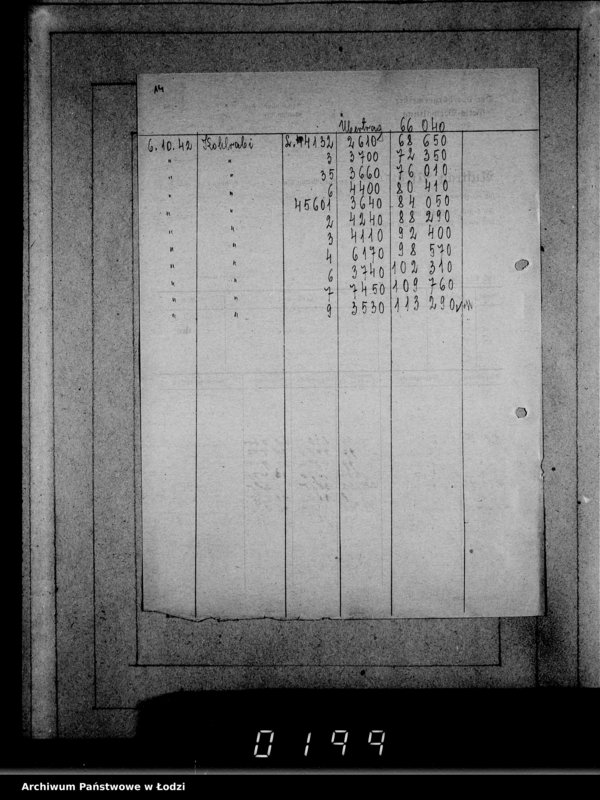 Übertrag 66 040
6.10.42 Kohlrabi L. 44132 2610 68 650
" " 3 3700 72 350
" " 35 3660 76 010
" " 6 4400 80 410
" " 45601 3640 84 050
" " 2 4240 88 290
" " 3 4110 92 400
" " 4 6170 98 570
" " 6 3740 102 310
" " 7 7450 109 760
" " 9 3530 113 290
0199
Archiwum Państwowe w Łodzi